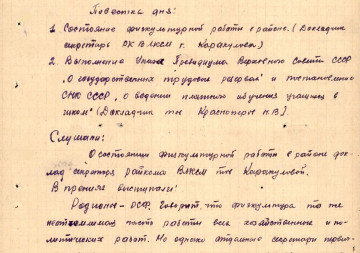 Повестка дня:
1. Состояние физкультурной работы в районе. (Докладчик
секретарь РК ВЛКСМ т. Каракулова).
2. Выполнение Указа Президиума Верховного Совета СССР
"О государственных трудовых резервах" и постановление
СНК СССР "О ведении платного обучения учащихся в
школах" (Докладчик тов. Красноперов Н.В.).
Слушали:
О состоянии физкультурной работы в районе док-
лад секретаря Райкома ВЛКСМ тов. Каракуловой.
В прениях выступали:
Родионы - говорит, что физкультура та же
неотъемлемая часть работы всех хозяйственных и по-
литических работ. Но однако отдельные секретари первич-